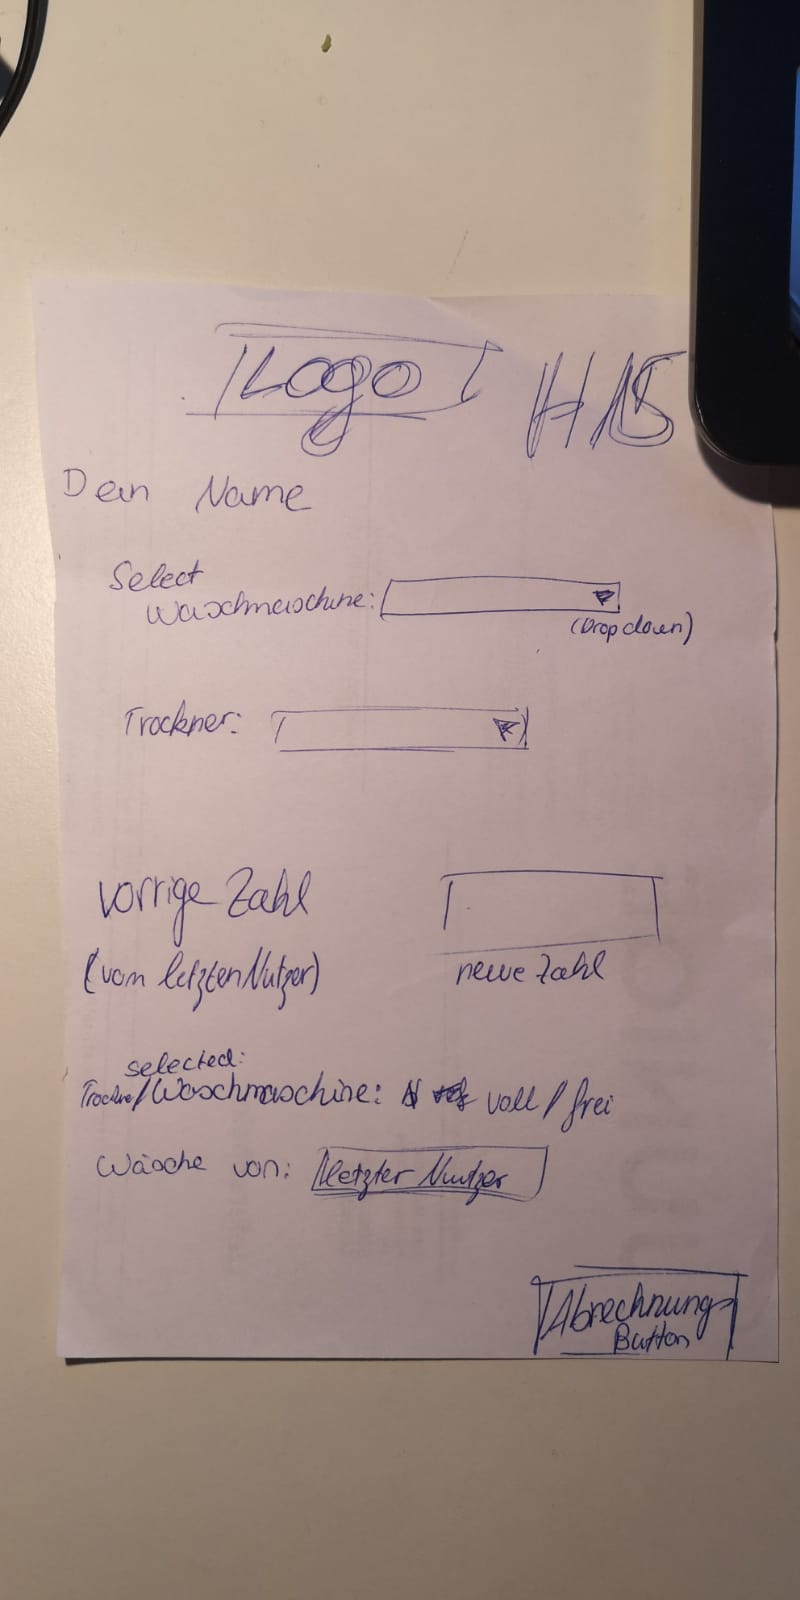 Logo H15
Dein Name
Select
Waschmaschine:
(Drop down)
Trockner:
vorrige Zahl
(vom letzten Nutzer) neue Zahl
selected:
Trockner/Waschmaschine: voll / frei
Wäsche von: letzter Nutzer
Abrechnung
Button